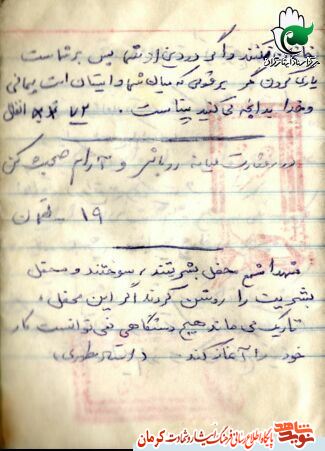 و اگر در دین از شما پس بر شماست
یاری کردن مگر بر قومی که میان شما و ایشان است پیمانی
و خدا بدانچه می‌کنید بیناست. ۷۲ انفال
در رفتارت میانه رو باش و آرام صحبت کن
۱۹ لقمان
شهدا شمع محفل بشریتند، سوختند و محفل
بشریت را روشن کردند اگر این محفل،
تاریک می ماند هیچ دستگاهی نمی توانست کار
خود را آغاز کند. (استاد مطهری)
نوید شاهد
پایگاه اطلاع رسانی فرهنگ ایثار و شهادت کرمان